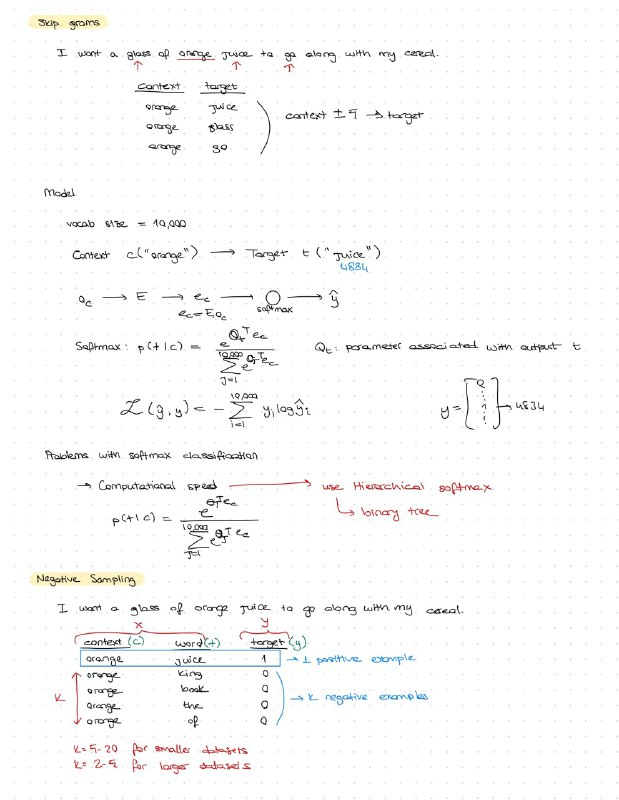 Skip grams
I want a glass of orange juice to go along with my cereal.
context target
orange juice
orange glass
orange go
context ± 5 → target
Model
vocab size = 10,000
Context c("orange") → Target t("juice")
4834
o_c → E → e_c → ○ → ŷ
softmax
e_c = E.o_c
Softmax: p(t|c) = e^{θ_t^T e_c} / Σ_{j=1}^{10,000} e^{θ_j^T e_c}
θ_t: parameter associated with output t
ℒ(ŷ,y) = - Σ_{i=1}^{10,000} y_i log ŷ_i
y = [0 ⋮ 1 ⋮] → 4834
Problems with softmax classification
→ Computational speed → use Hierarchical softmax
↳ binary tree
p(t|c) = e^{θ_t^T e_c} / Σ_{j=1}^{10,000} e^{θ_j^T e_c}
Negative Sampling
I want a glass of orange juice to go along with my cereal.
x y
context (c) word (t) target (y)
orange juice 1 → 1 positive example
orange king 0
orange book 0
orange the 0
orange of 0
K
→ K negative examples
K = 5-20 for smaller datasets
K = 2-5 for larger datasets